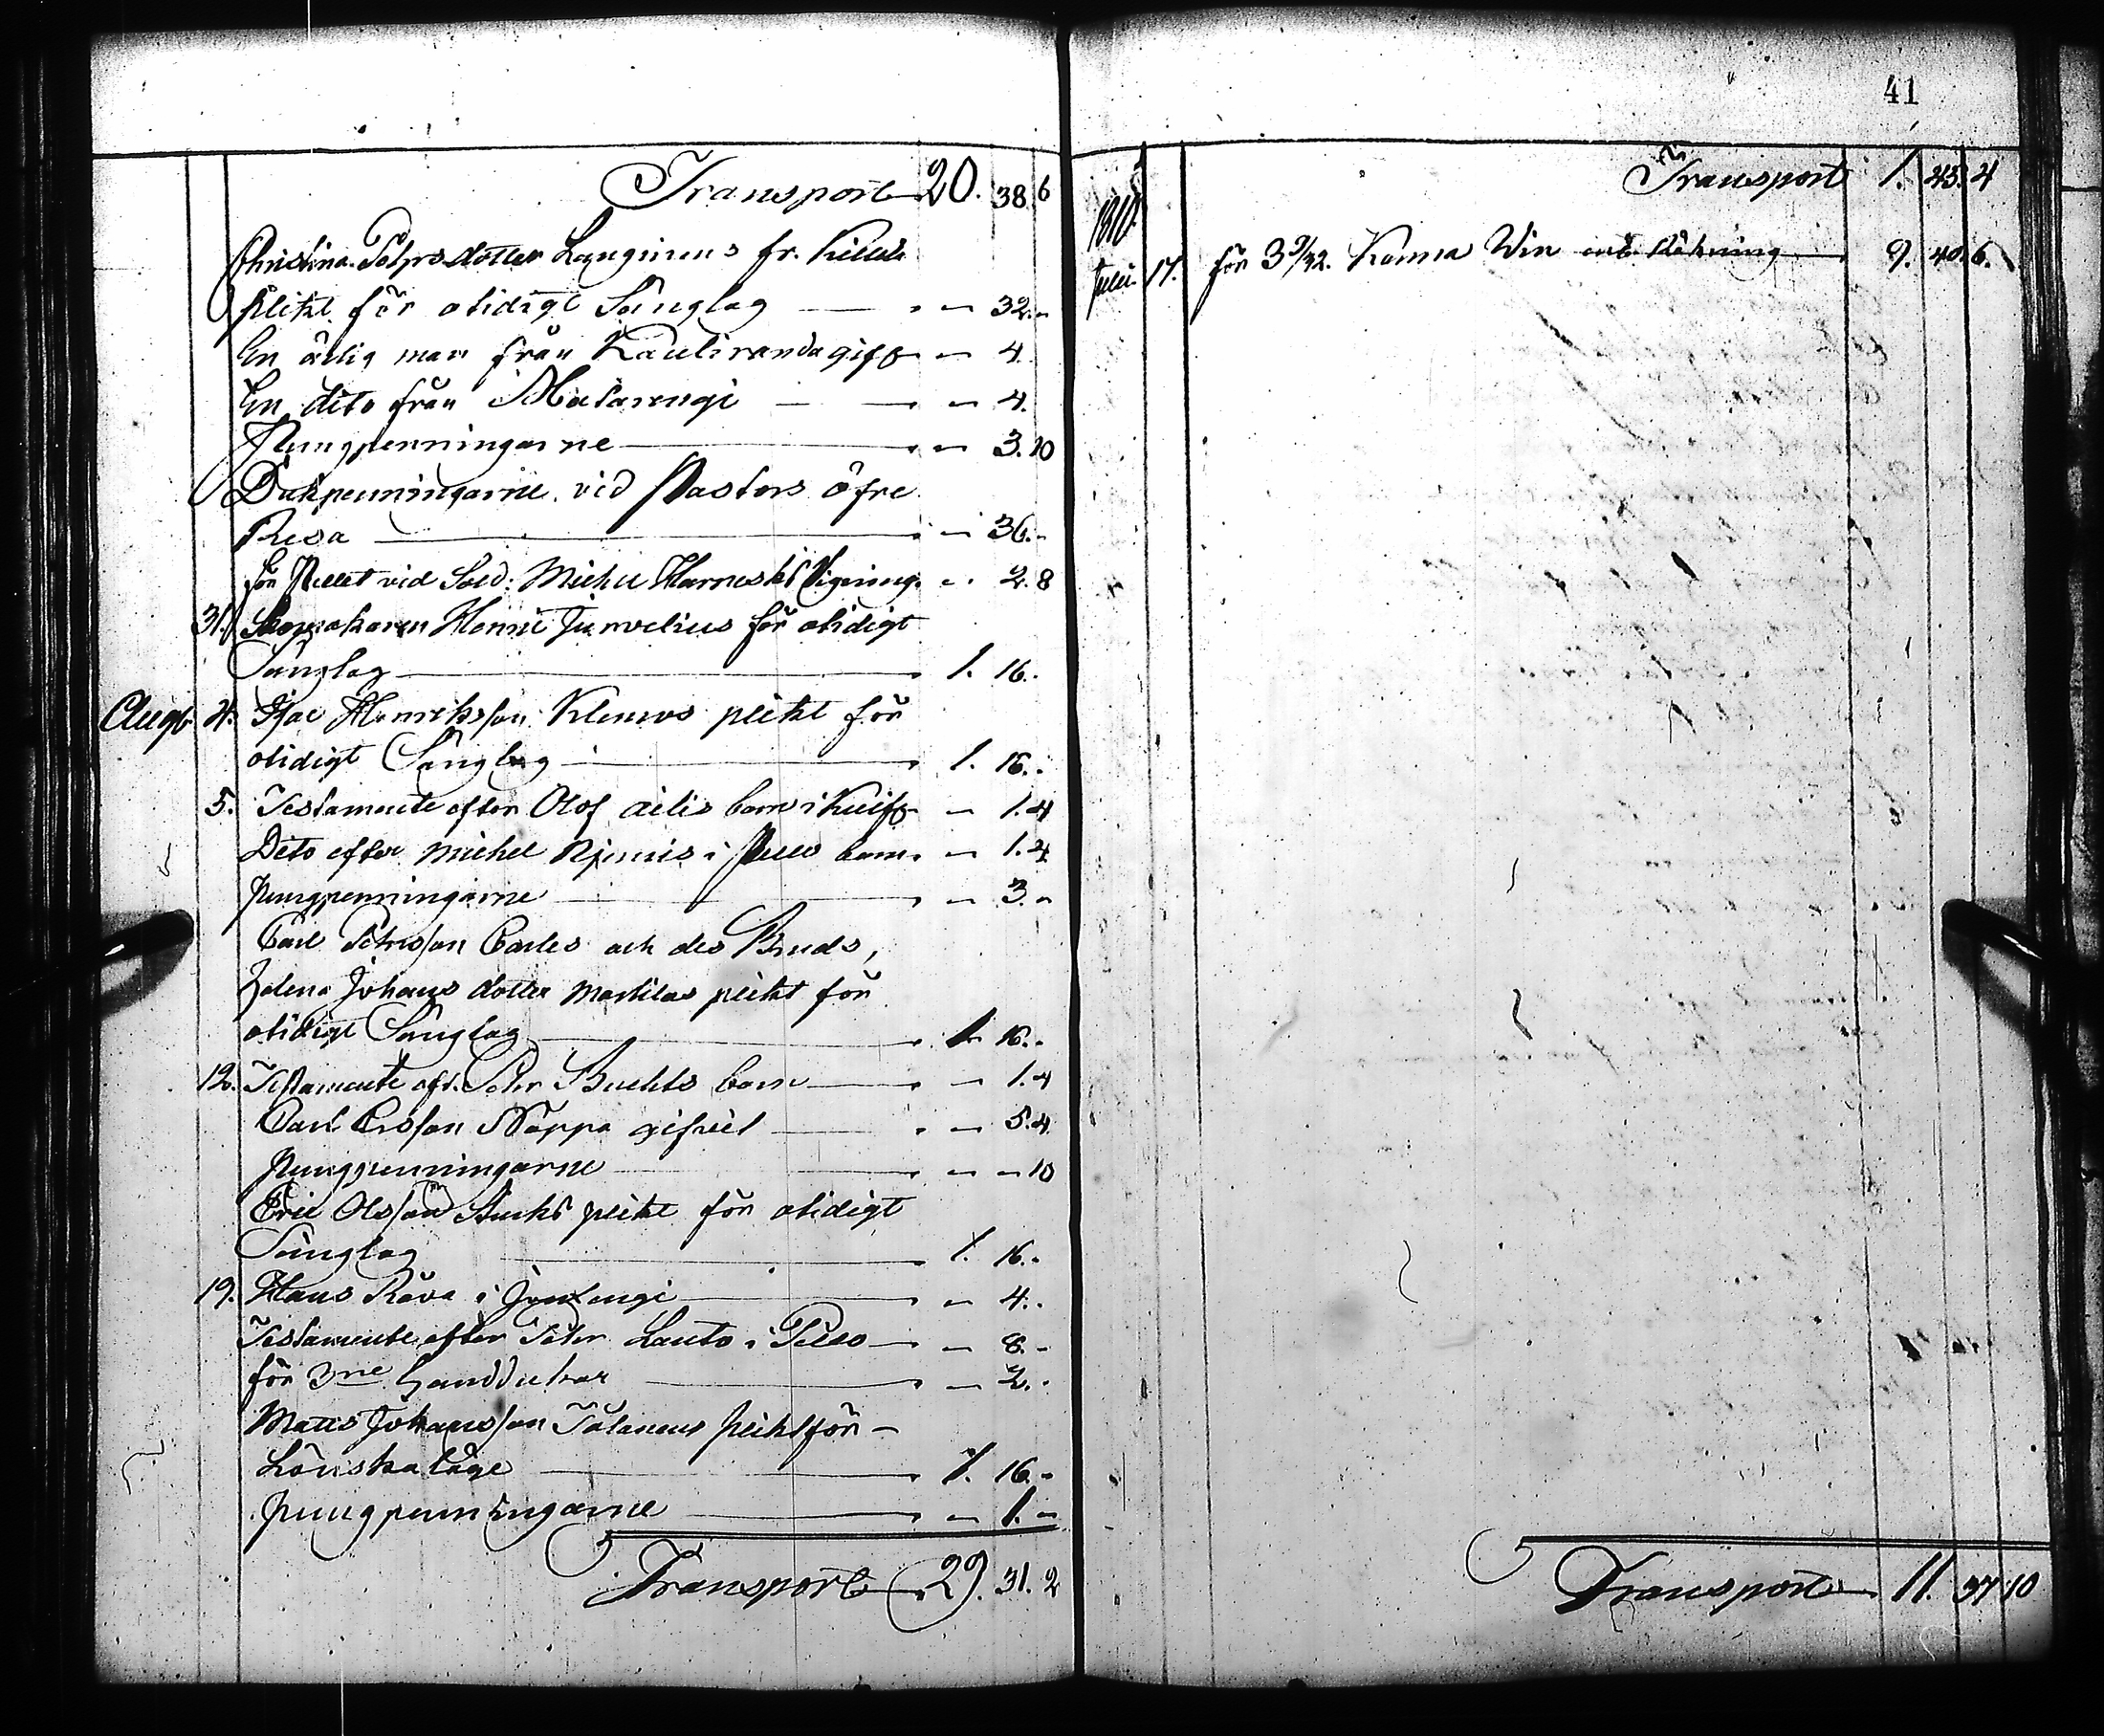 Transport 20. 38. 6
Christina Petersdotter Langinens fr.
plikt för otidigt Sänglag — 32. -
En ärlig man från Kauliranda gifv. - 4.
En dito från Matarengi — - 4.
Pungpenningarne — - 3. 10
Dukpenningarne vid Pastors öfre
Resa — - 36. -
för Pellet vid Sold: Michel Harnesks Vigning. - 2. 8
31. Skomakaren Henric Junvelius för otidigt
Sänglag — 1. 16.
Aug. 4. Isac Henriksson Klemos plikt för
otidigt Sänglag — 1. 16. -
5. Testamente efter Olof barn i - 1. 4
Dito efter Michel i Pello barn. - 1. 4
pungpenningarne — - 3. -
Carl Petersson Carles och des Bruds,
Helena Johans dotter Martilas plikt för
otidigt Sänglag — 1. 16. -
12. Testamente eft. Petr Buchts barn — - 1. 4
Carl Ersson Nappa gifvit — - 5. 4.
Pungpenningarne — - - 10
Eric Olsson Starks plikt för otidigt
Sänglag — 1. 16. -
19. Hans Rova i Juoxengi — - 4. -
Testamente efter Petr Lauto i Pello — - 8. -
för 3ne handdukar — - 2. -
Matts Johansson Tolanens plikt för
Lönskaläge — 1. 16. -
pungpenningarne — - 1. -
Transport 29. 31. 2
41
Transport 1. 45. 4
1810.
Julii 17. för 3 9/32 Kanna Vin enl. Räkning — 9. 40. 6.
Transport 11. 37 10